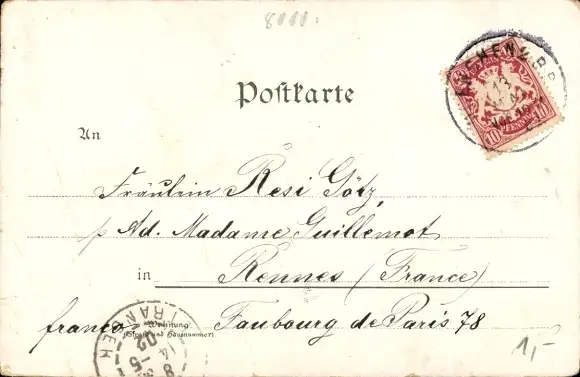 8000.
Postkarte
An
Fräulein Resi Götz,
p/ Ad. Madame Guillemot
in Rennes (France)
franco Faubourg de Paris 78
Wohnung
(Straße und Hausnummer)
10 PFENNIG 10
13
ETRANGER
14 -5
02
1,-